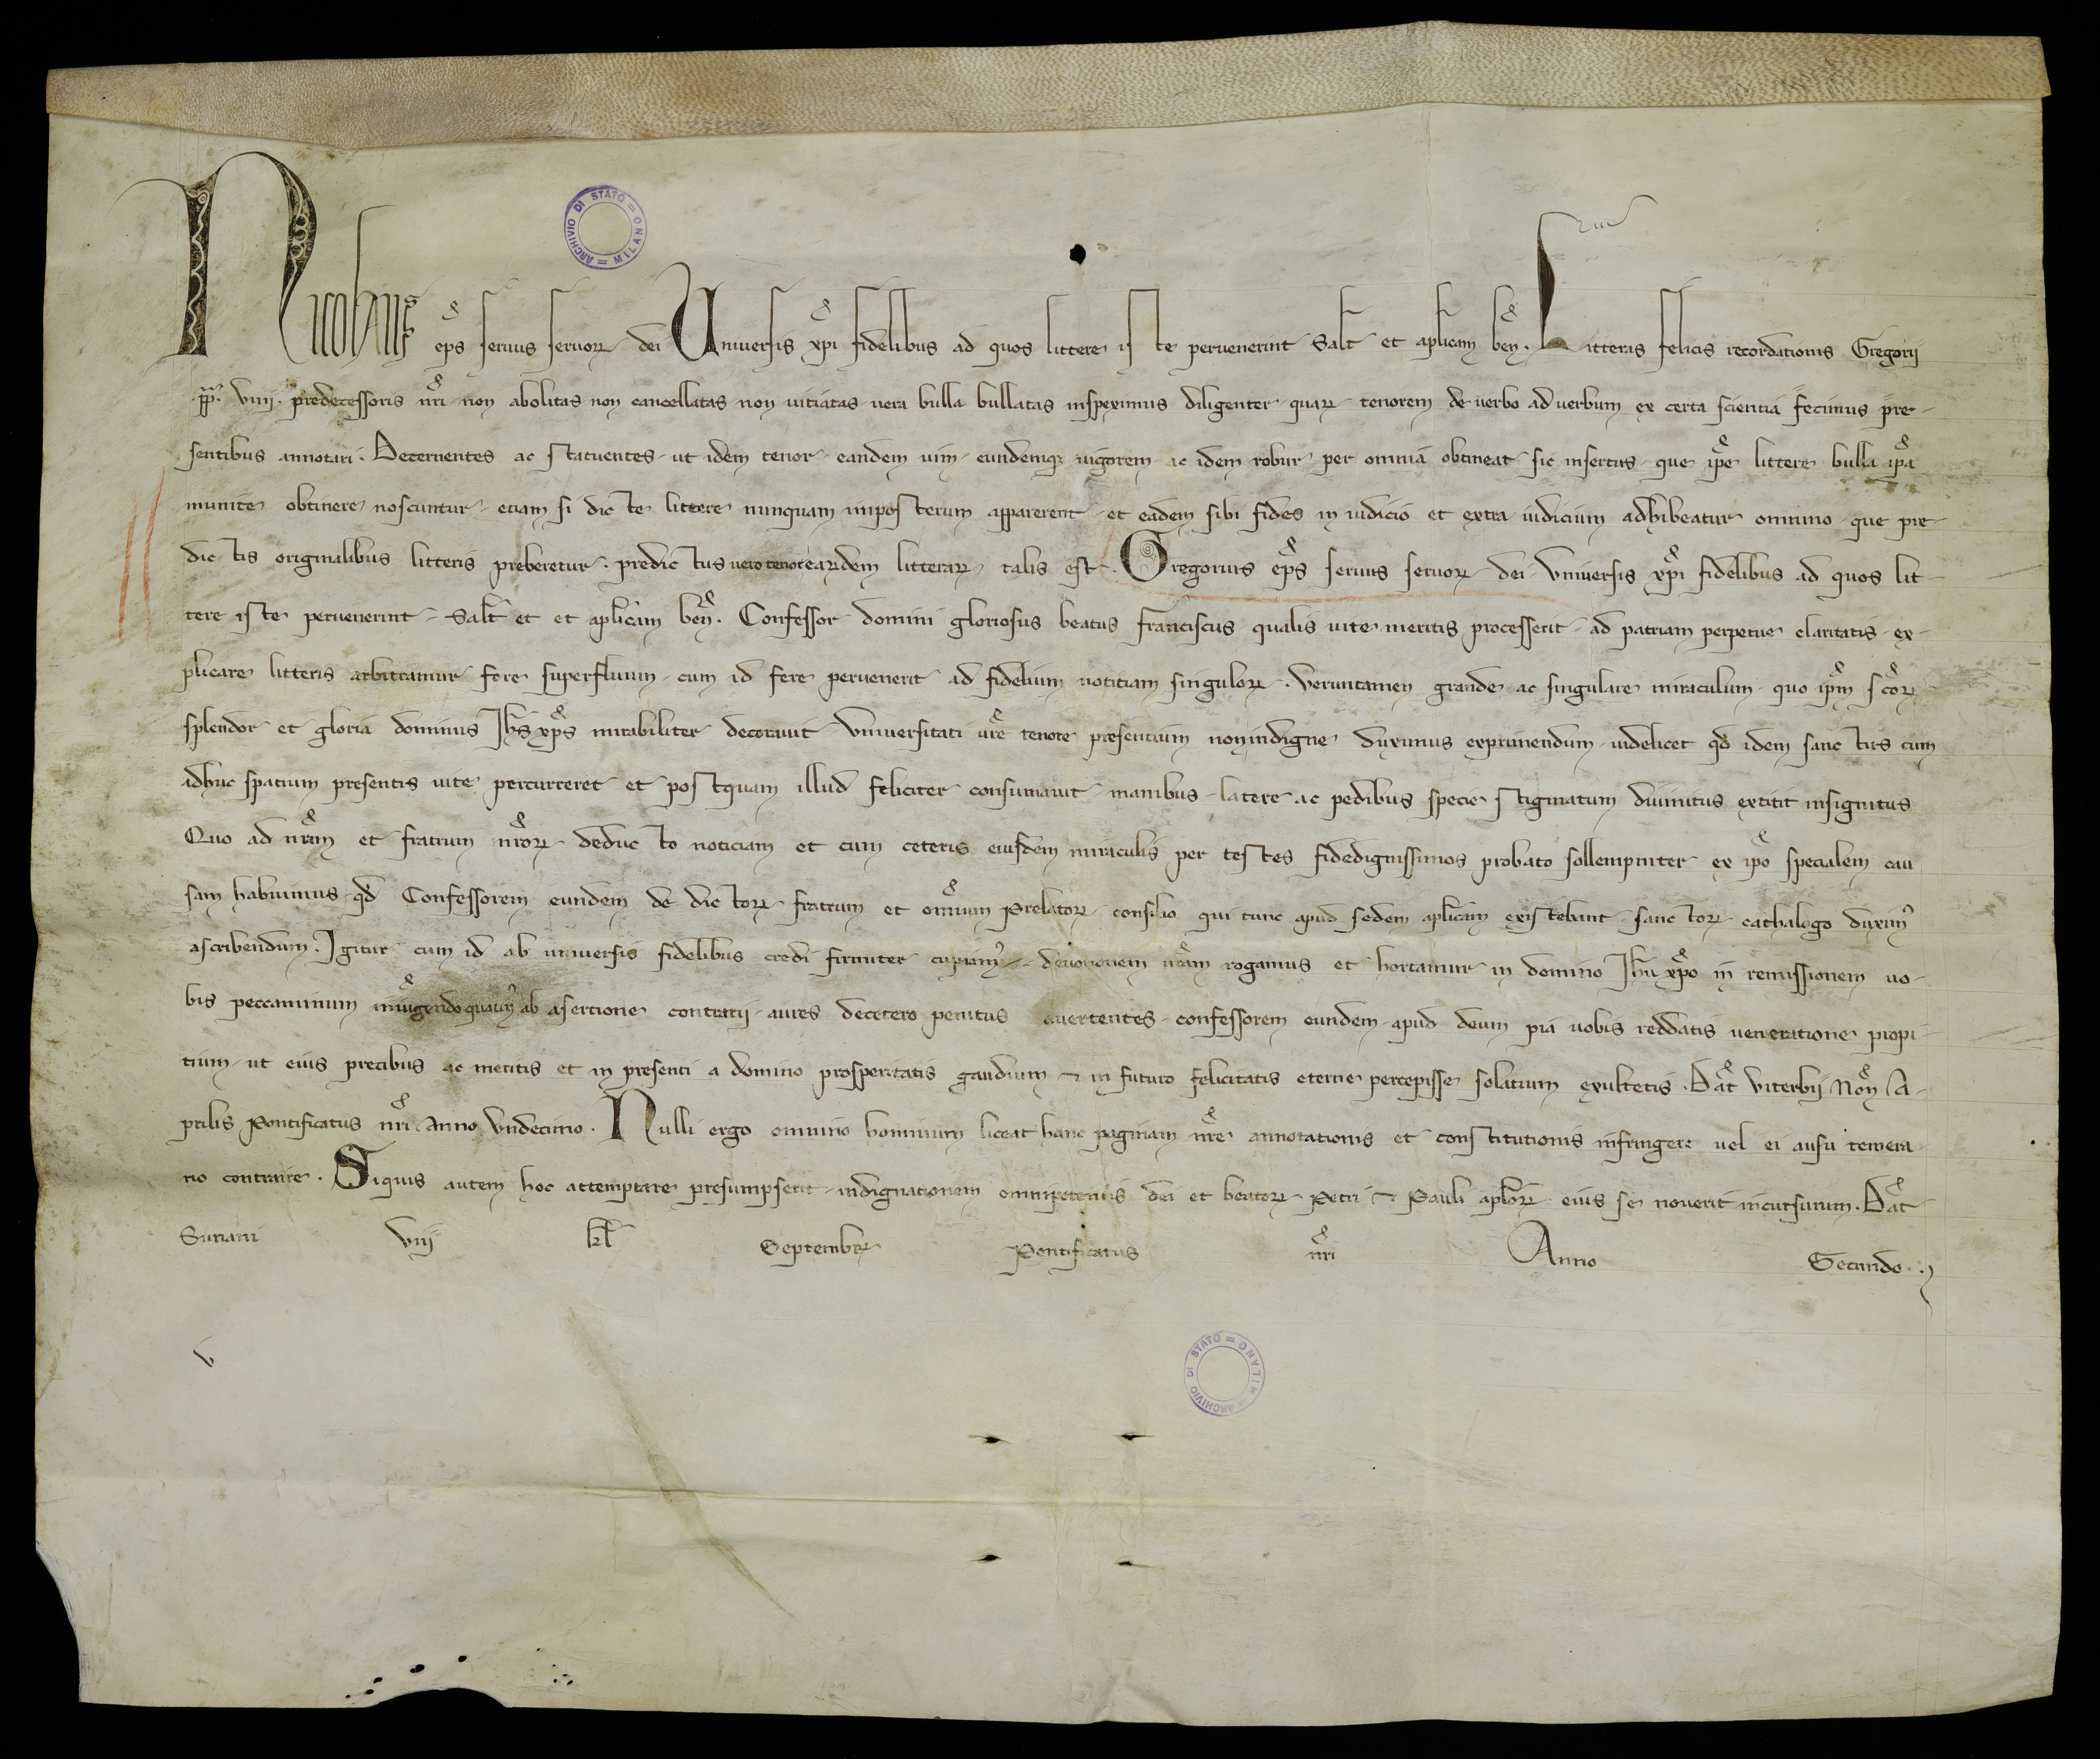 Nicolaus eps seruus seruor dei Uniuersis xpi fidelibus ad quos littere iste peruenerint Salt et aplicam ben. Litteras felicis recordationis Gregorii
.pp. viiij. predecessoris nri non abolitas non cancellatas non uitiatas uera bulla bullatas inspeximus diligenter quar tenorem de uerbo ad uerbum ex certa scientia fecimus pre-
sentibus annotari. Decernentes ac statuentes ut idem tenor eandem uim eundemq; uigorem ac idem robur per omnia obtineat sic insertus que ipe littere bulla ipa
munite obtinere noscuntur etiam si dicte littere nunquam imposterum apparerent et eadem sibi fides in iudicio et extra iudicium adhibeatur omnino que pre-
dictis originalibus litteris preberetur. predictus uero tenor eardem litterar talis est. Gregorius eps seruus seruor dei Vniuersis xpi fidelibus ad quos lit-
tere iste peruenerint Salt et et aplicam ben. Confessor domini gloriosus beatus franciscus qualis uite meritis processerit ad patriam perpetue claritatis ex-
plicare litteris arbitramur fore superfluum cum id fere peruenerit ad fidelium notitiam singulor. Veruntamen grande ac singulare miraculum quo ipm scor
splendor et gloria dominus Ihs xps mirabiliter decorauit Vniuersitati ure tenore presentium non indigne duximus exprimendum uidelicet qd idem sanctus cum
adhuc spatium presentis uite percurreret et postquam illud feliciter consumauit manibus latere ac pedibus specie stigmatum diuinitus extitit insignitus
Quo ad nram et fratrum nror deducto noticiam et cum ceteris eiusdem miraculis per testes fidedignissimos probato sollempniter ex ipo specialem cau
sam habuimus qd Confessorem eundem de dictor fratrum et omium Prelator consilio qui tunc apud sedem aplicam existebant sanctor cathalogo duxim9
ascribendum. Igitur cum id ab uniuersis fidelibus credi firmiter cupiam9 deuotionem uram rogamus et hortamur in domino Ihu xpo in remissionem uo-
bis peccaminum iniungendo quatin9 ab asertione contrarii aures decetero penitus auertentes confessorem eundem apud deum pia uobis reddatis ueneratione propi-
tium ut eius precibus ac meritis et in presenti a domino prosperitatis gaudium ⁊ in futuro felicitatis eterne percepisse solatium exultetis. Dat Viterbii Non A-
prilis Pontificatus nri Anno Vndecimo. Nulli ergo omnino hominum liceat hanc paginam nre annotationis et constitutionis infringere uel ei ausu temera-
rio contraire. Siquis autem hoc attemptare presumpserit indignationem omnipotentis dei et beator Petri ⁊ Pauli aplor eius se nouerit incursurum. Dat
Suriani viij kl Septembr Pontificatus nri Anno Secundo.
ARCHIVIO DI STATO = MILANO =
ARCHIVIO DI STATO = MILANO =